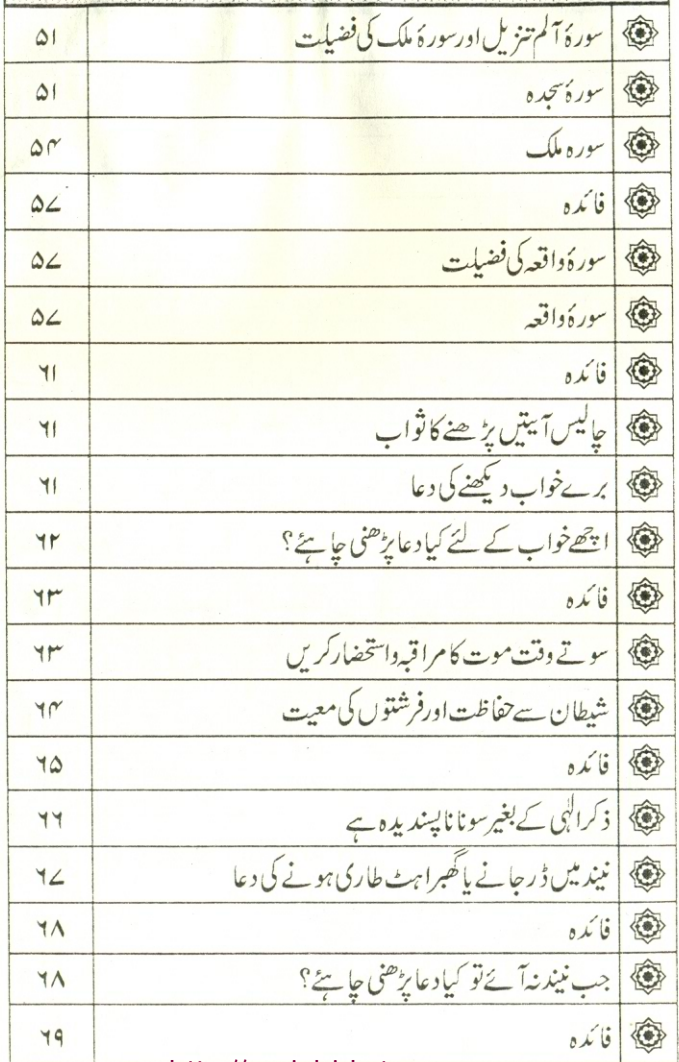 سورۂ آلم تنزیل اور سورۂ ملک کی فضیلت ۵۱
سورۂ سجدہ ۵۱
سورہ ملک ۵۴
فائدہ ۵۷
سورۂ واقعہ کی فضیلت ۵۷
سورۂ واقعہ ۵۷
فائدہ ۶۱
چالیس آیتیں پڑھنے کا ثواب ۶۱
برے خواب دیکھنے کی دعا ۶۱
اچھے خواب کے لئے کیا دعا پڑھنی چاہئے؟ ۶۲
فائدہ ۶۳
سوتے وقت موت کا مراقبہ واستحضار کریں ۶۳
شیطان سے حفاظت اور فرشتوں کی معیت ۶۴
فائدہ ۶۵
ذکر الٰہی کے بغیر سونا ناپسندیدہ ہے ۶۶
نیند میں ڈر جانے یا گھبراہٹ طاری ہونے کی دعا ۶۷
فائدہ ۶۸
جب نیند نہ آئے تو کیا دعا پڑھنی چاہئے؟ ۶۸
فائدہ ۶۹